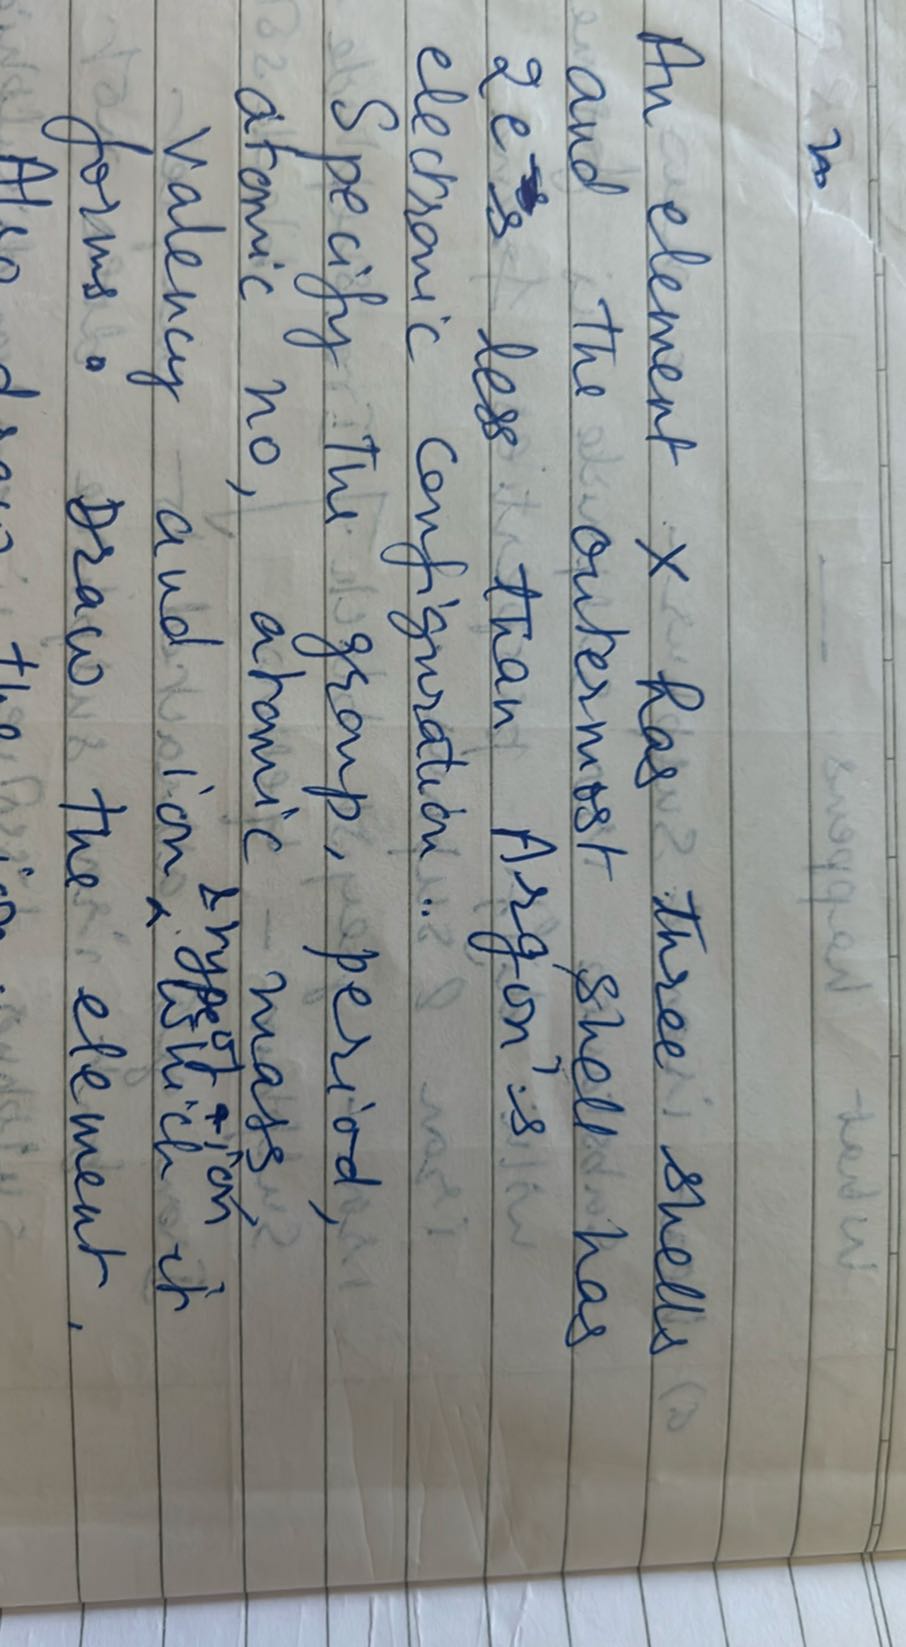 An element X has three shells
and the outermost shell has
2e⁻s less than Argon's
electronic configuration..
Specify the group, period,
atomic no, atomic mass,
& type of ion,
Valency and ion, which it
forms. Draw the element.
Also draw the ion.